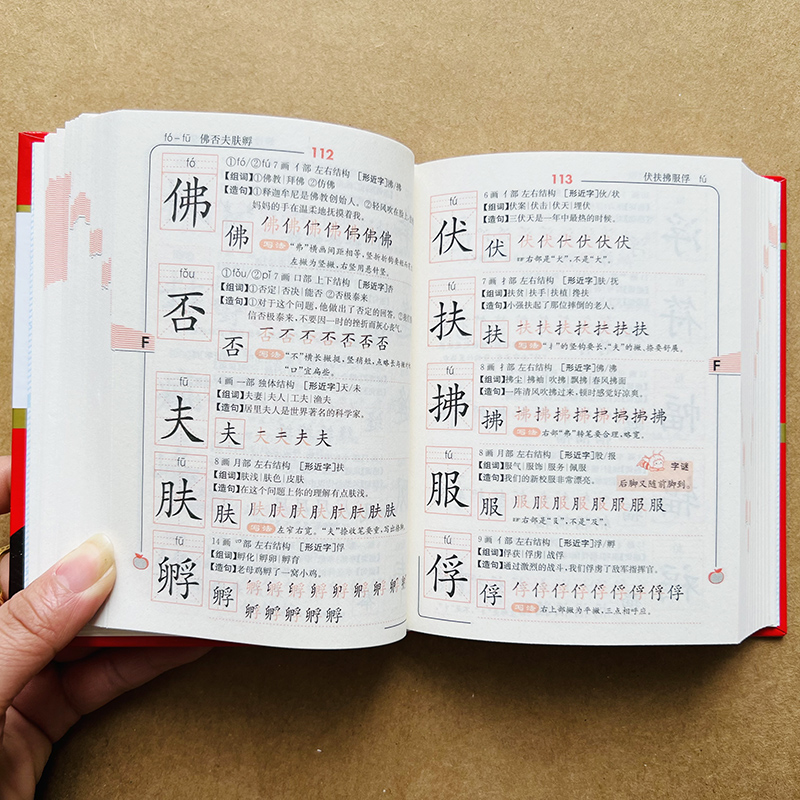 fó－fū 佛否夫肤孵
112
fó
佛
①fó/②fú 7画 亻部 左右结构 [形近字]沸/拂
【组词】①佛教|拜佛 ②仿佛
【造句】①释迦牟尼是佛教创始人。②轻风吹在脸上
妈妈的手在温柔地抚摸着我。
佛
写法 “弗”横画间距相等，竖折折钩
左撇为竖撇，右竖用悬针竖。
fǒu
否
①fǒu/②pǐ 7画 口部 上下结构 [形近字]
【组词】①否定|否决|能否 ②否极泰来
【造句】①对于这个问题，他做出了否定的回答。②
信否极泰来，不要因一时的挫折而灰心丧气。
否
写法 “不”横长撇挺，竖稍短，点略长
“口”宜扁些。
F
fū
夫
4画 一部 独体结构 [形近字]天/未
【组词】夫妻|夫人|工夫|渔夫
【造句】居里夫人是世界著名的科学家。
夫
fū
肤
8画 月部 左右结构 [形近字]扶
【组词】肤浅|肤色|皮肤
【造句】在这个问题上你的理解有点肤浅。
肤
写法 左窄右宽。“夫”捺收笔要重，写出捺脚。
fū
孵
14画 爫部 左右结构 [形近字]俘
【组词】孵化|孵卵|孵育
【造句】老母鸡孵了一窝小鸡。
孵
113
伏扶拂服俘 fú
fú
伏
6画 亻部 左右结构 [形近字]伏/状
【组词】伏案|伏击|伏天|埋伏
【造句】三伏天是一年中最热的时候。
伏 伏伏伏伏伏伏
四右部是“犬”，不是“大”。
fú
扶
7画 扌部 左右结构 [形近字]肤/抚
【组词】扶贫|扶手|扶植|搀扶
【造句】小强扶起了那位摔倒的老人。
扶
写法 “扌”的竖钩要长，“夫”的撇、捺要舒展。
F
fú
拂
8画 扌部 左右结构 [形近字]佛/沸
【组词】拂尘|拂袖|吹拂|飘拂|春风拂面
【造句】一阵清风吹拂过来，顿时感觉好凉爽。
拂
写法 右部“弗”转笔要合理，略宽。
fú
服
8画 月部 左右结构 [形近字]股/报
【组词】服气|服饰|服务|佩服
【造句】我们的新校服非常漂亮。
字谜
后脚又随前脚到。
服
四右部是“𠬝”，不是“及”。
fú
俘
9画 亻部 左右结构 [形近字]浮/孵
【组词】俘获|俘虏|战俘
【造句】通过激烈的战斗，我们俘虏了敌军指挥官。
俘
写法 右上部撇为平撇，三点相呼应。